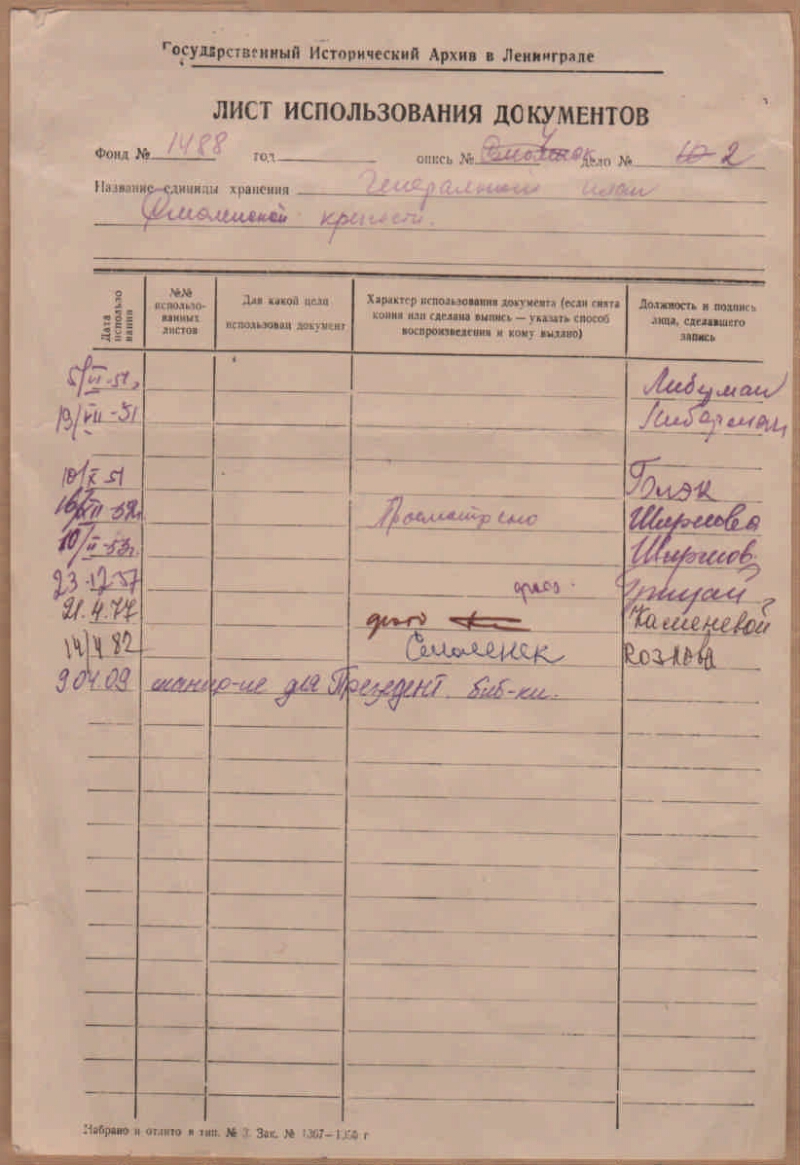 Государственный Исторический Архив в Ленинграде
ЛИСТ ИСПОЛЬЗОВАНИЯ ДОКУМЕНТОВ
Фонд № 1488 год опись № Смоленск дело № 10 2
Название единицы хранения Генеральный план
Смоленской крепости.
Дата использования
№№ использованных листов
Для какой цели использован документ
Характер использования документа (если снята копия или сделана выпись — указать способ воспроизведения и кому выдано)
Должность и подпись лица, сделавшего запись
5/VI-51.
19/VII-51 Либерман
10/X 51 Блэк
16/XII-52г. Просмотрено Ширшова
10/II-53г.
23-12-57
21.4.77 Каменевой
14/4 82 Смоленск Козлова
9 04 09 сканир-ие для Президент. биб-ки.
Набрано и отлито в тип. № 3. Зак. №